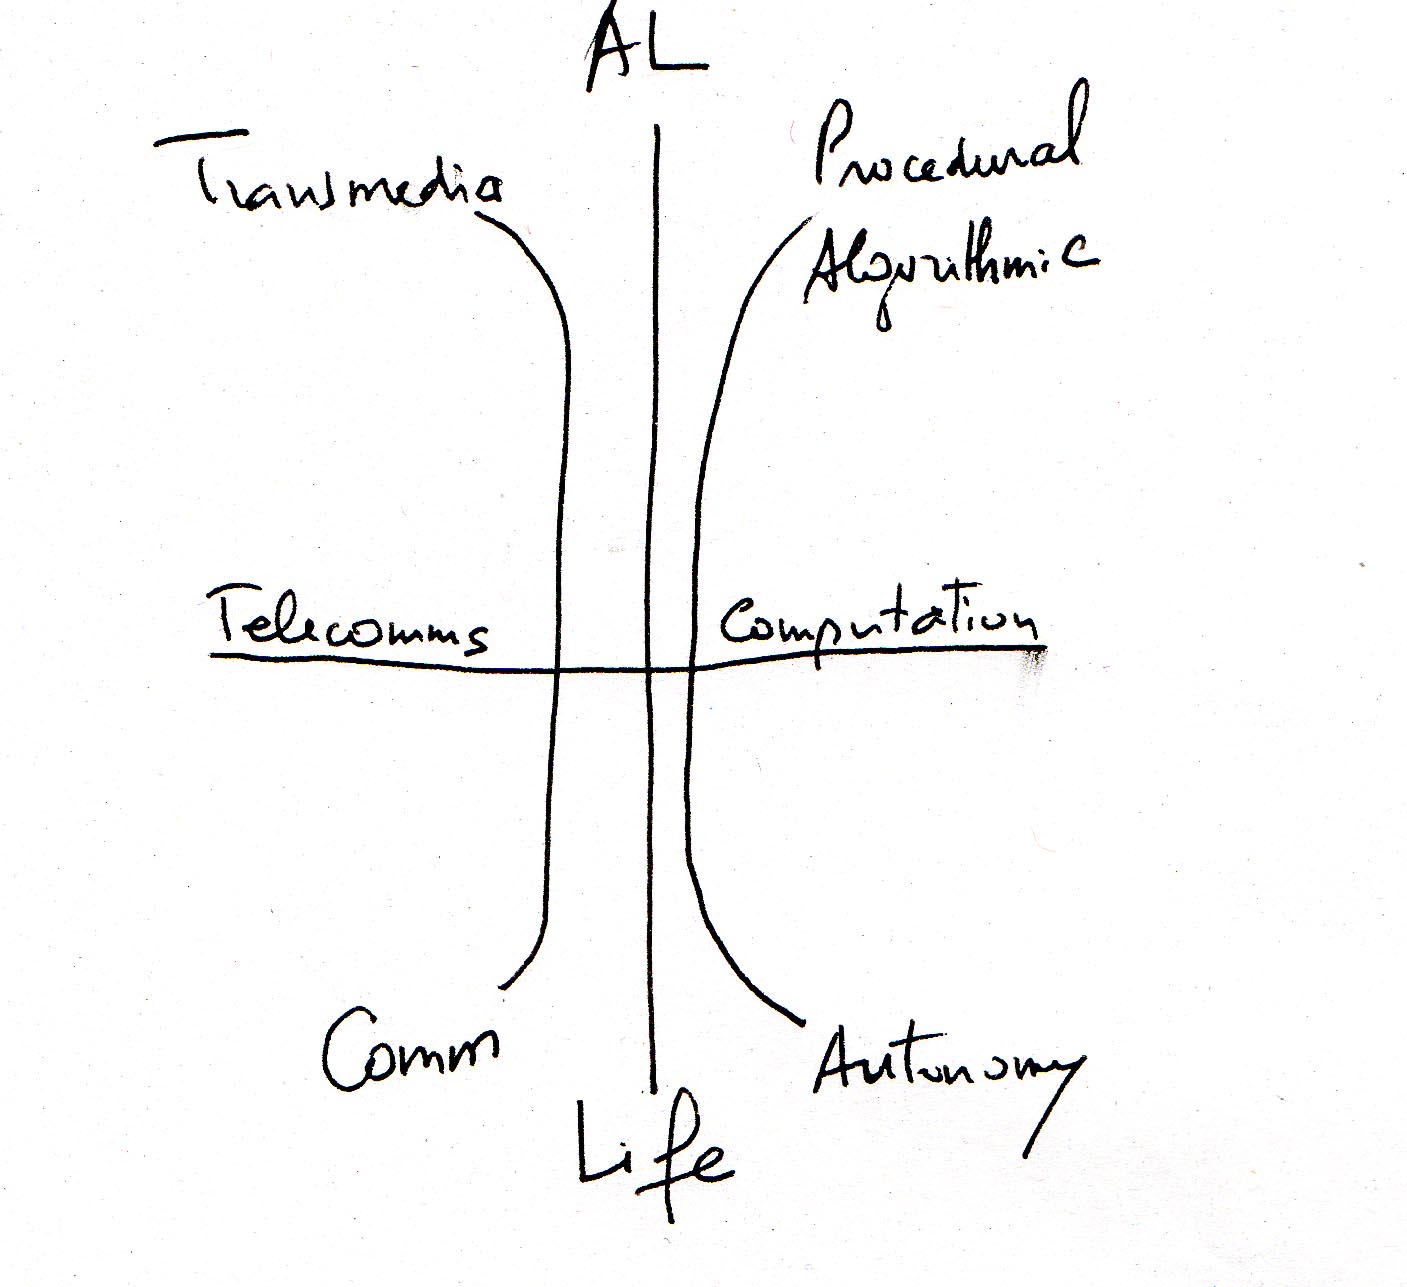 AL
Transmedia
Procedural
Algorithmic
Telecomms
Computation
Comm
Autonomy
Life